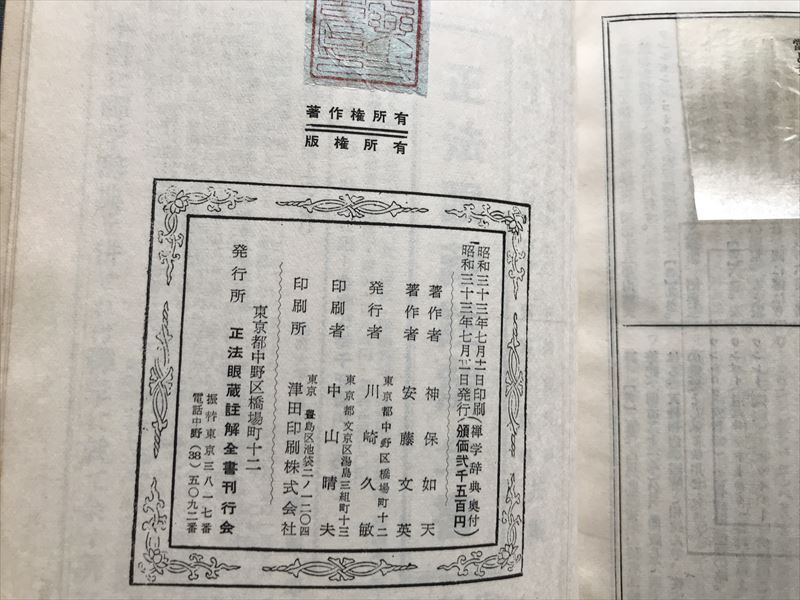 著作権所有
版権所有
昭和三十三年七月十一日印刷(禅学辞典奥付)
昭和三十三年七月廿一日発行(頒価弐千五百円)
著作者 神保如天
著作者 安藤文英
東京都中野区橋場町十二
発行者 川崎久敏
東京都文京区湯島三組町十三
印刷者 中山晴夫
東京 豊島区池袋二ノ一二〇四
印刷所 津田印刷株式会社
東京都中野区橋場町十二
発行所 正法眼蔵註解全書刊行会
振替東京三八一七番
電話中野(38)五〇九二番